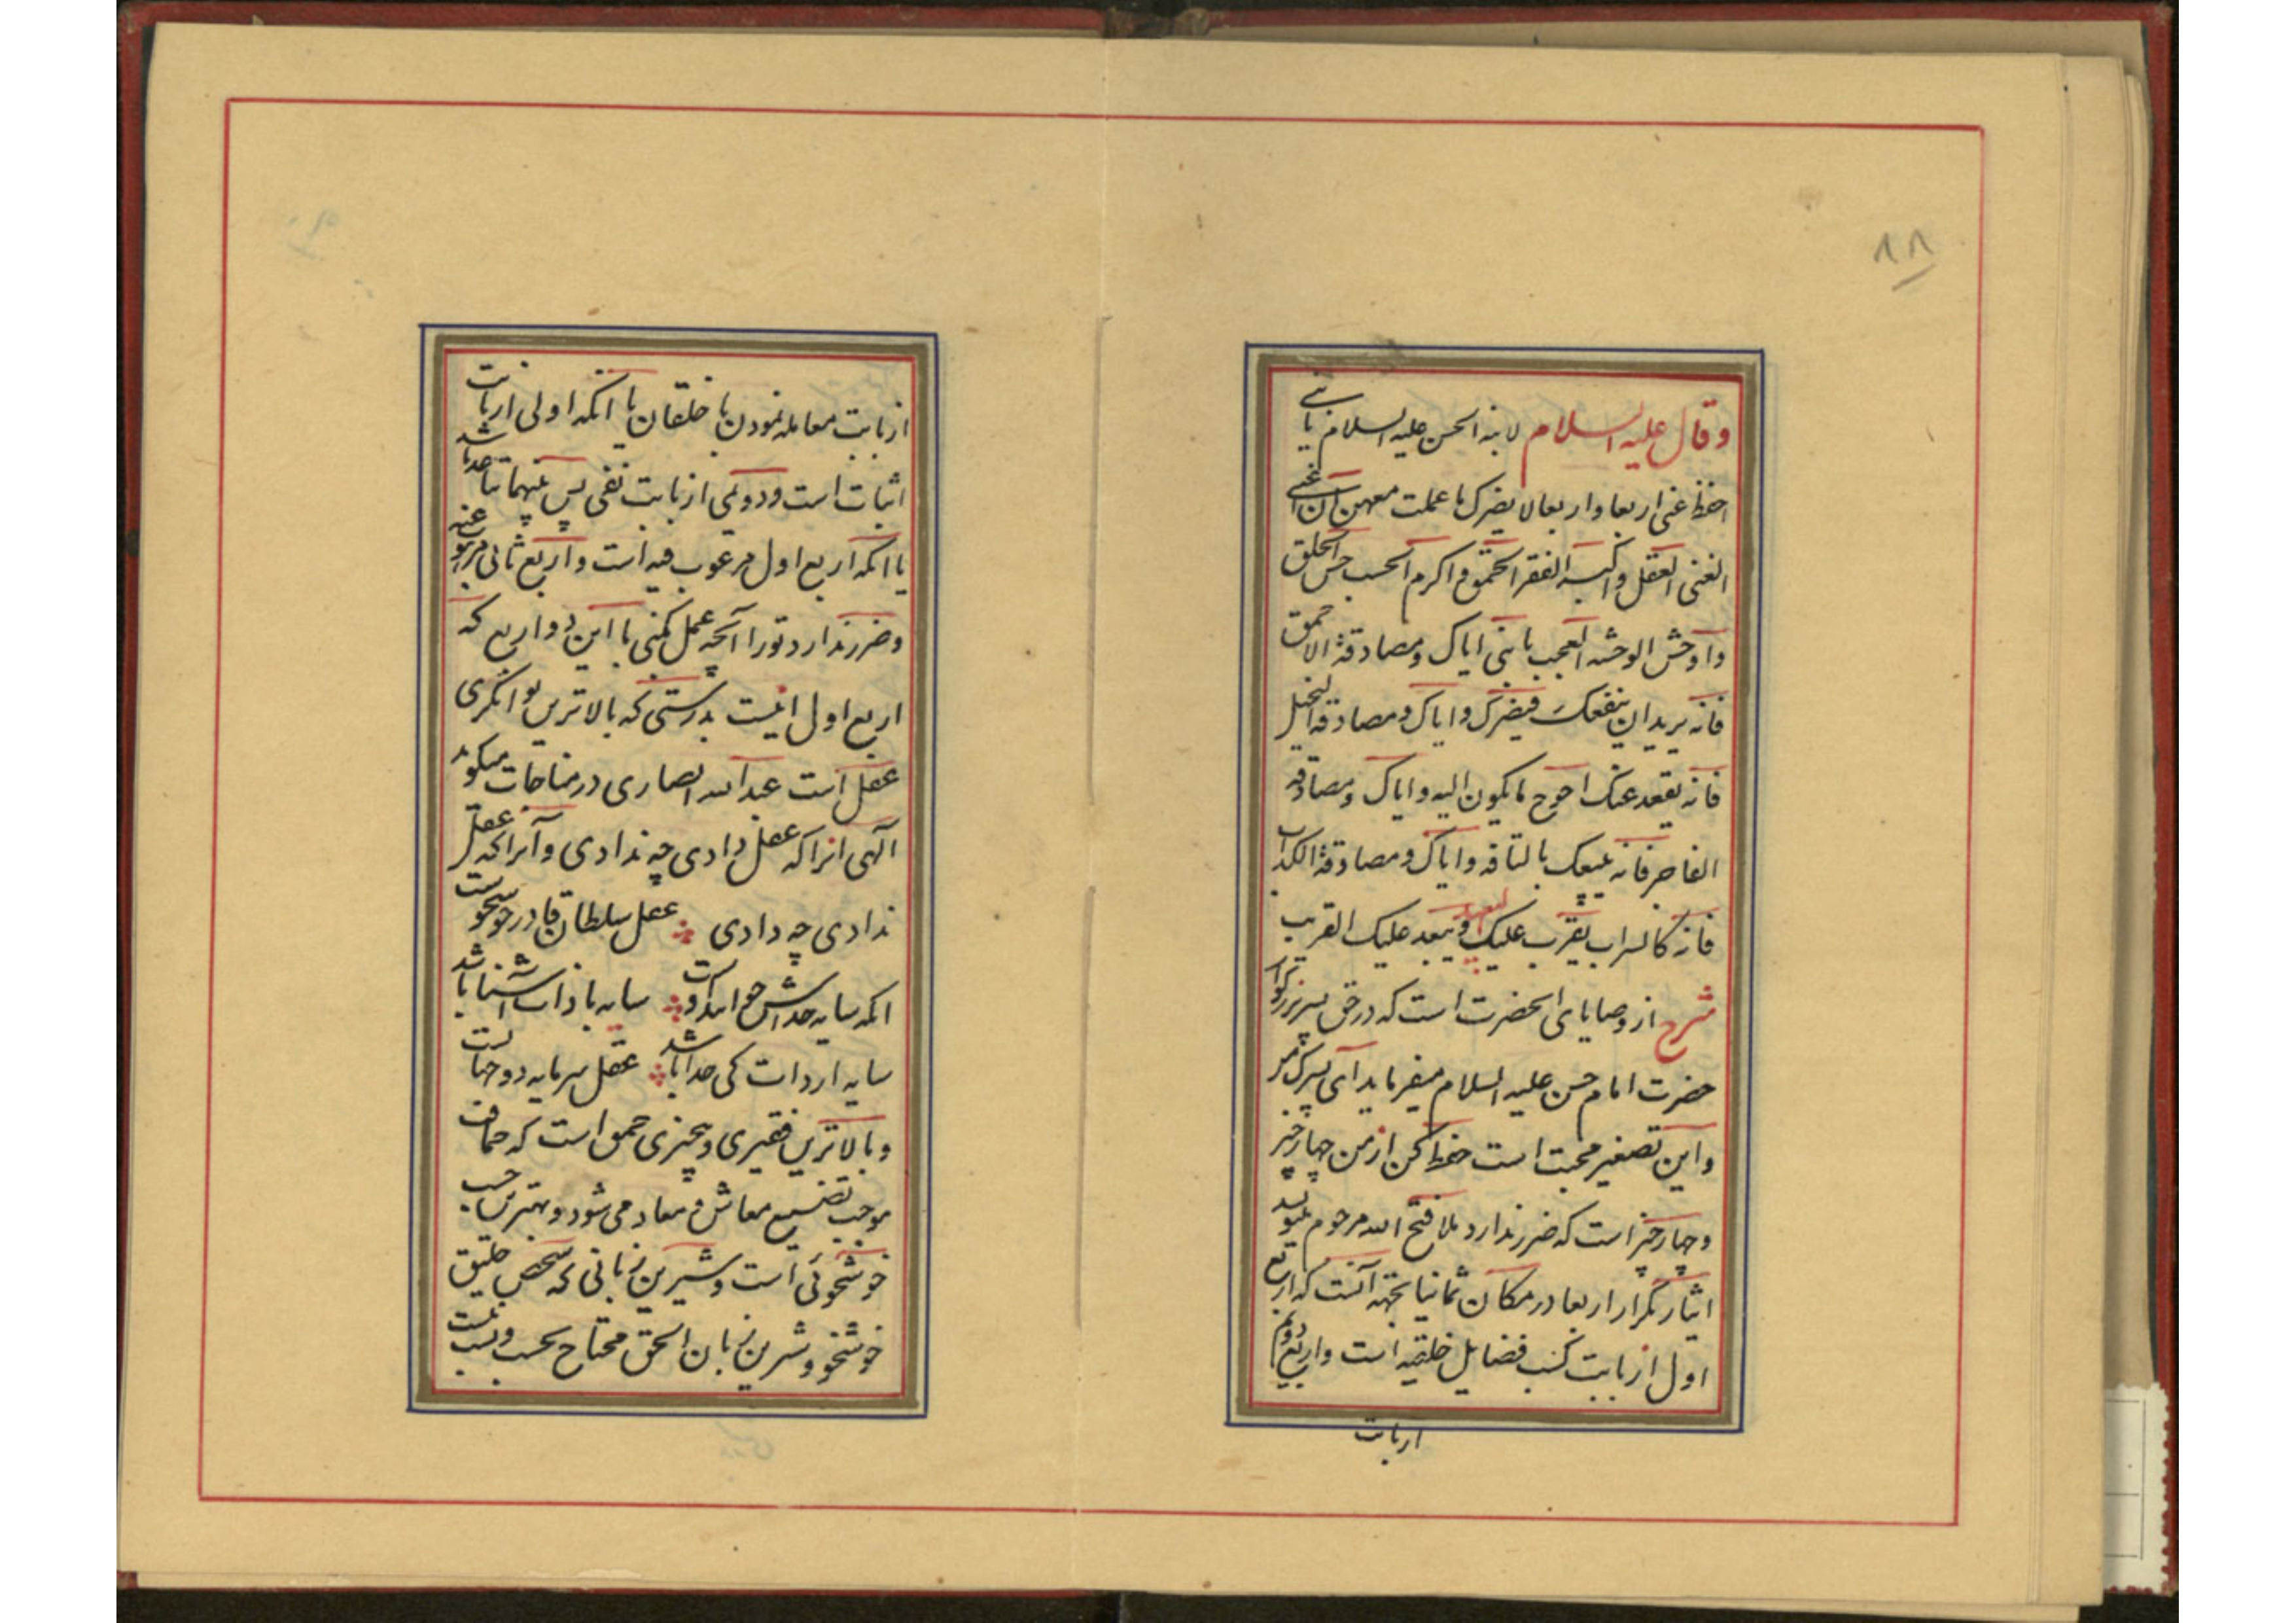 ۸۸
وقال علیه السلام لابنه الحسن علیه السلام یا بنی
احفظ عنی اربعا واربعا لا یضرک ما عملت معهن ان اغنی
الغنی العقل واکبر الفقر الحمق واکرم الحسب حسن الخلق
واوحش الوحشه العجب یا بنی ایاک ومصادقة الاحمق
فانه یرید ان ینفعک فیضرک وایاک ومصادقة البخیل
فانه یقعد عنک احوج ما تکون الیه وایاک ومصادقه
الفاجر فانه یبیعک بالتافه وایاک ومصادقة الکذاب
فانه کالسراب یقرب علیک البعید ویبعد علیک القریب
شرح از وصایای انحضرت است که در حق پسر بزرگوار
حضرت امام حسن علیه السلام میفرماید ای پسرک من
واین تصغیر محبت است حفظ کن از من چهار چیز
وچهار چیز است که ضرر ندارد ملا فتح الله مرحوم
ایثار تکرار اربعا در مکان ثمانیا بجهه آنست که اربع
اول از بابت کسب فضایل خلقیه است واربع دویم
از بابت
از بابت معامله نمودن با خلقان یا انکه اولی از بابت
اثبات است ودویمی از بابت نفی پس بینهما تباعد باشد
یا انکه اربع اول مرغوب فیه است واربع ثانی مرغوب عنه
وضرر ندارد تورا آنچه عمل کنی با این دو اربع که
اربع اول اینست بدرستی که بالاترین توانگری
عقل است عبدالله انصاری در مناجات میگوید
الهی انرا که عقل دادی چه ندادی وآنرا که عقل
ندادی چه دادی عقل سلطان قادر خوشخوست
انکه سایه خداش خوانند اوست سایه با ذات اشنا باشد
سایه از ذات کی جدا باشد عقل سرمایه دو جهانست
وبالاترین فقیری وبیچیزی حمق است که حماقت
موجب تضییع معاش و معاد می شود وبهترین حسب
خوشخوئی است وشیرین زبانی که شخص خلیق
خوشخو وشیرین زبان الحق محتاج بحسب ونسب نیست